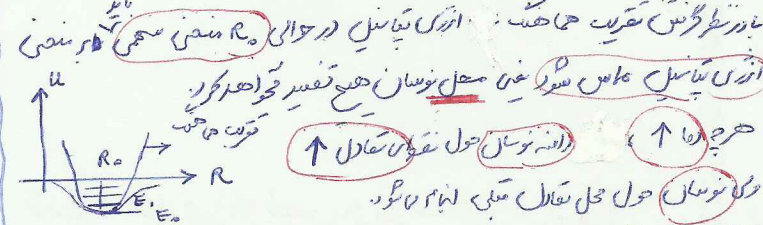 با در نظر گرفتن تقریب هماهنگ: انرژی پتانسیل در حوالی R₀ منحنی سهمی باید بر منحنی
انرژی پتانسیل مماس شود یعنی محل نوسان هیچ تغییر نخواهد کرد.
هرچه دما ↑ دامنه نوسان حول نقطه‌ی تعادل ↑
ولی نوسان حول محل تعادل قبلی انجام می‌شود.
U
تقریب هماهنگ
R₀
R
E₁
E₀